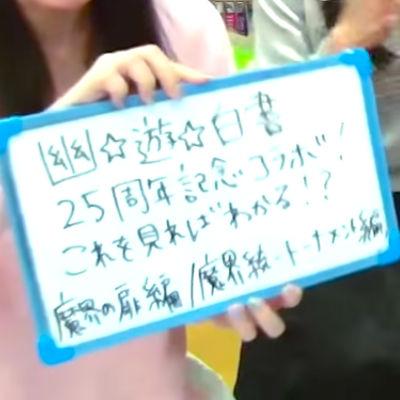 幽☆遊☆白書
25周年記念コラボ!
これを見ればわかる!?
魔界の扉編/魔界統一トーナメント編